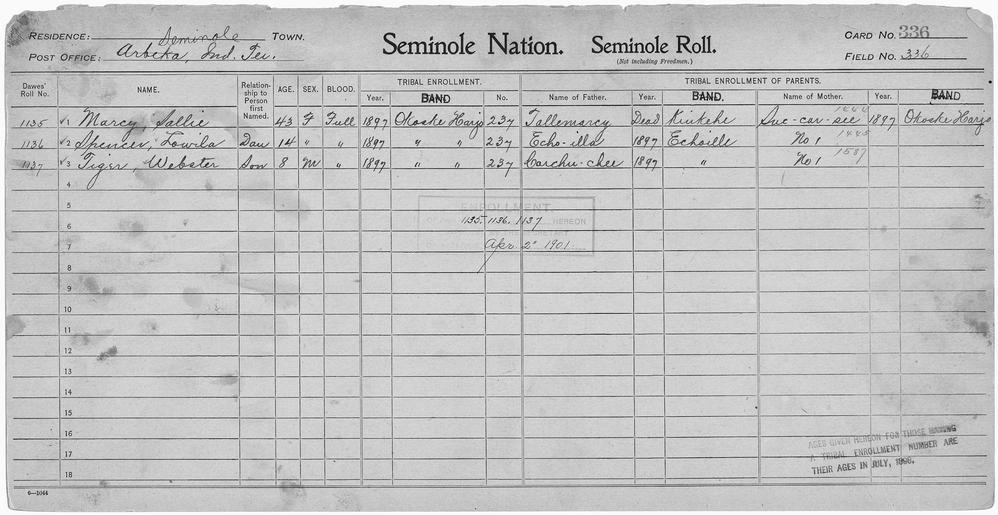 RESIDENCE: Seminole TOWN.
POST OFFICE: Arbeka, Ind. Ter.
Seminole Nation. Seminole Roll.
(Not including Freedmen.)
CARD NO. 336
FIELD NO. 336
Dawes' Roll No. NAME. Relationship to Person first Named. AGE. SEX. BLOOD. TRIBAL ENROLLMENT. TRIBAL ENROLLMENT OF PARENTS.
Year. BAND No. Name of Father. Year. BAND. Name of Mother. Year. BAND
1135 1 Marcy, Sallie 43 F Full 1897 Okoske Harjo 237 Tallemarcy Dead Kinkehe Suc-car-see 1897 Okoske Harjo
1136 2 Spencer, Lowila Dau 14 " " 1897 " " 237 Echo-illa 1897 Echoille No 1 1445
1137 3 Tiger, Webster Son 8 M " 1897 " " 237 Carchu-chee 1897 " No 1 1587
4
5
ENROLLMENT
6
1135. 1136. 1137 HEREON
7
Apr. 2" 1901
8
9
10
11
12
13
14
15
16
17
18
AGES GIVEN HEREON FOR THOSE HAVING
A TRIBAL ENROLLMENT NUMBER ARE
THEIR AGES IN JULY, 1898.
6—1044